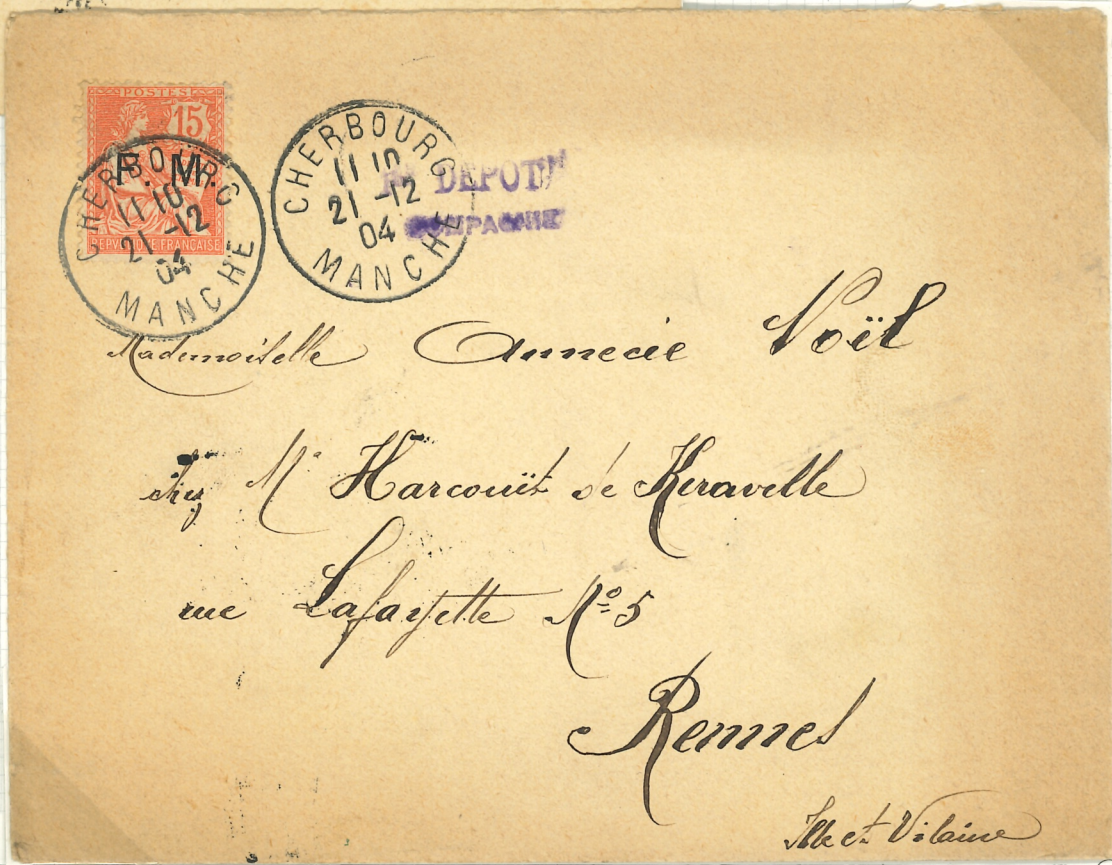 POSTES
15
F. M.
REPUBLIQUE FRANÇAISE
CHERBOURG
11 10
21 -12
04
MANCHE
CHERBOURG
11 10
21 -12
04
MANCHE
DEPOT
COMPAGNIE
Mademoiselle Annecie Noël
chez Mr Harcouët de Keravelle
rue Lafayette No 5
Rennes
Ille et Vilaine